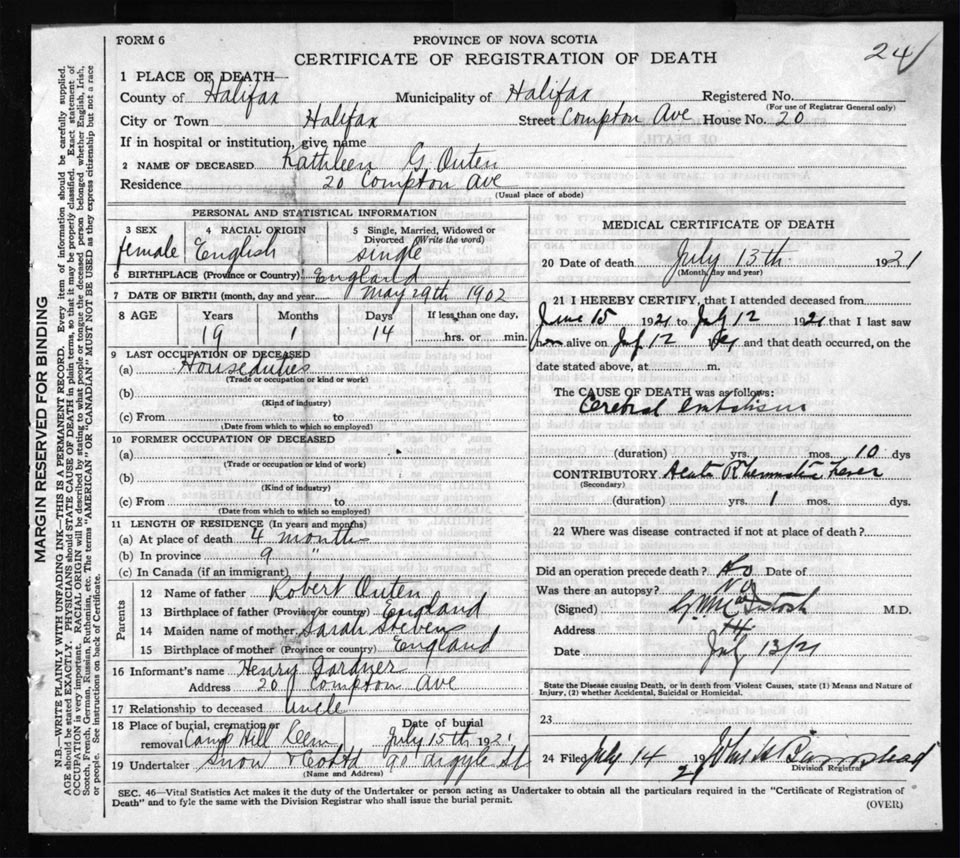 FORM 6
PROVINCE OF NOVA SCOTIA
CERTIFICATE OF REGISTRATION OF DEATH
24
1 PLACE OF DEATH—
County of Halifax Municipality of Halifax Registered No.
(For use of Registrar General only)
City or Town Halifax Street Compton Ave House No. 20
If in hospital or institution, give name
2 NAME OF DECEASED Kathleen G. Outen
Residence 20 Compton Ave
(Usual place of abode)
PERSONAL AND STATISTICAL INFORMATION
3 SEX female
4 RACIAL ORIGIN English
5 Single, Married, Widowed or Divorced (Write the word) single
6 BIRTHPLACE (Province or Country) England
7 DATE OF BIRTH (month, day and year May 29th 1902
8 AGE Years 19 Months 1 Days 14 If less than one day, hrs. or min.
9 LAST OCCUPATION OF DECEASED
(a) Houseduties
(Trade or occupation or kind of work)
(b)
(Kind of industry)
(c) From to
(Date from which to which so employed)
10 FORMER OCCUPATION OF DECEASED
(a)
(Trade or occupation or kind of work)
(b)
(Kind of industry)
(c) From to
(Date from which to which so employed)
11 LENGTH OF RESIDENCE (In years and months)
(a) At place of death 4 months
(b) In province 9 "
(c) In Canada (if an immigrant)
Parents
12 Name of father Robert Outen
13 Birthplace of father (Province or country) England
14 Maiden name of mother Sarah Stevens
15 Birthplace of mother (Province or country) England
16 Informant's name Henry Gardner
Address 20 Compton Ave
17 Relationship to deceased uncle
18 Place of burial, cremation or removal Camp Hill Cem Date of burial July 15th 1921
19 Undertaker Snow & Co Ltd 90 Argyle St
(Name and Address)
MEDICAL CERTIFICATE OF DEATH
20 Date of death July 13th 1921
(Month, day and year)
21 I HEREBY CERTIFY, that I attended deceased from
June 15 1921 to July 12 1921 that I last saw
alive on July 12 and that death occurred, on the
date stated above, at m.
The CAUSE OF DEATH was as follows:
Cerebral embolism
(duration) yrs. mos. 10 dys
CONTRIBUTORY Acute Rheumatic Fever
(Secondary)
(duration) yrs. 1 mos. dys.
22 Where was disease contracted if not at place of death?
Did an operation precede death? No Date of
Was there an autopsy? No
(Signed) McIntosh M.D.
Address
Date July 13/21
State the Disease causing Death, or in death from Violent Causes, state (1) Means and Nature of
Injury, (2) whether Accidental, Suicidal or Homicidal.
23
24 Filed July 14 1921
Division Registrar
SEC. 46—Vital Statistics Act makes it the duty of the Undertaker or person acting as Undertaker to obtain all the particulars required in the "Certificate of Registration of
Death" and to fyle the same with the Division Registrar who shall issue the burial permit.
(OVER)
MARGIN RESERVED FOR BINDING
N.B.—WRITE PLAINLY WITH UNFADING INK—THIS IS A PERMANENT RECORD. Every item of information should be carefully supplied.
AGE should be stated EXACTLY. PHYSICIANS should STATE CAUSE OF DEATH in plain terms, so that it may be properly classified. Exact statement of
OCCUPATION is very important. RACIAL ORIGIN will be described by stating to what people or tongue the deceased person belonged whether English, Irish,
Scotch, French, German, Russian, Ruthenian, etc. The terms "AMERICAN" OR "CANADIAN" MUST NOT BE USED as they express citizenship but not a race
or people. See instructions on back of Certificate.